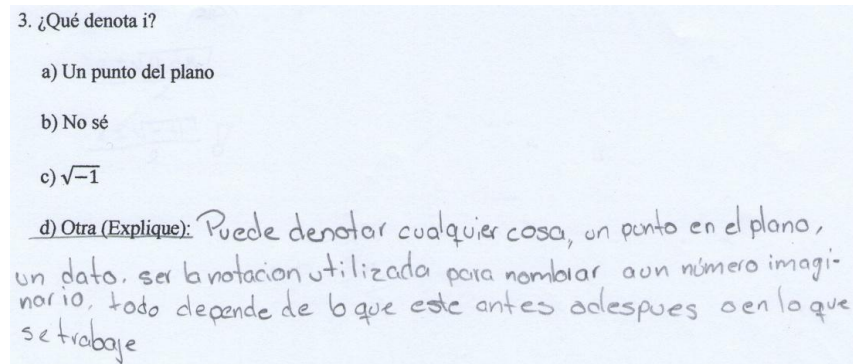 3. ¿Qué denota i?
a) Un punto del plano
b) No sé
c) √-1
d) Otra (Explique): Puede denotar cualquier cosa, un punto en el plano,
un dato. ser la notacion utilizada para nombrar aun número imagi-
nario. todo depende de lo que este antes odespues o en lo que
se trabaje